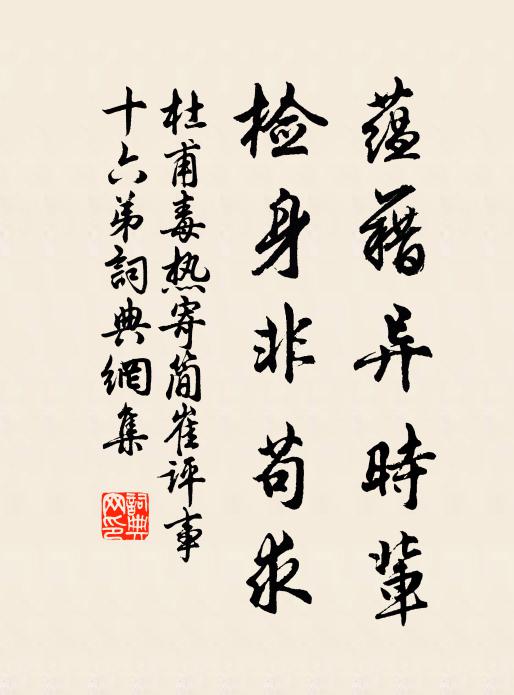 蕴藉异時輩
检身非苟求
杜甫毒热寄简崔评事
十六弟詞典網集
詞典
网印